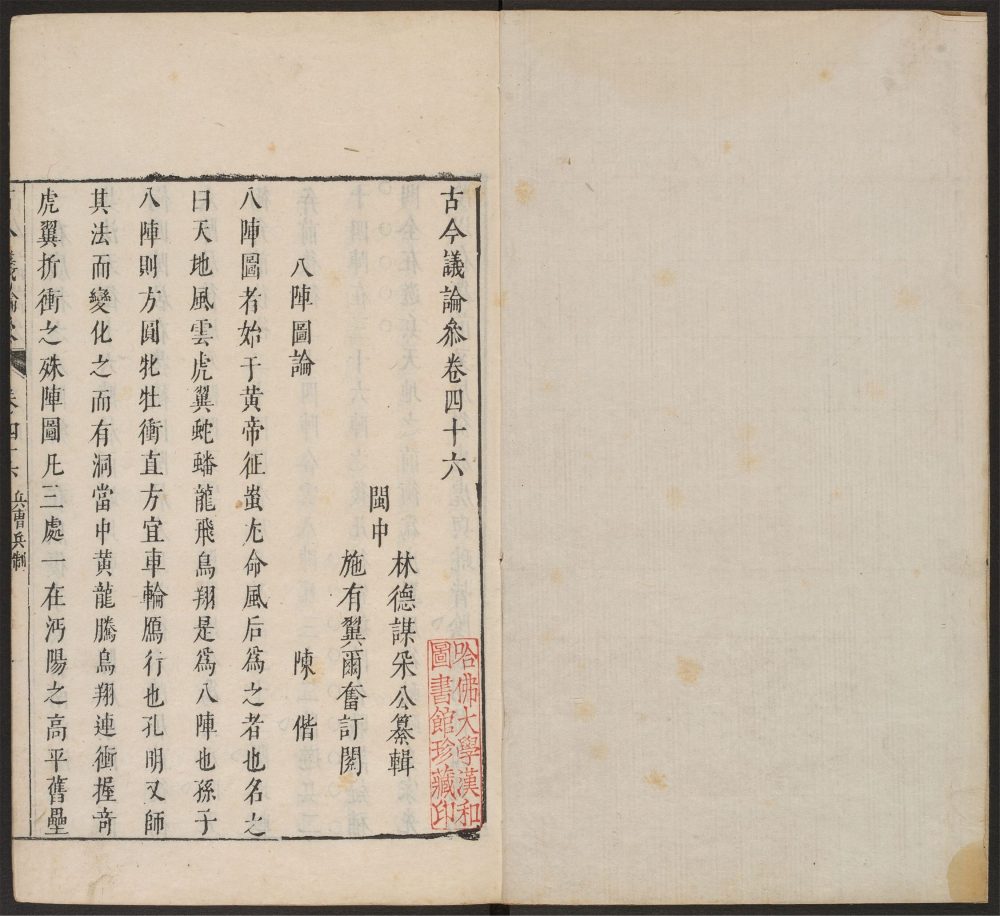 古今議論叅卷四十六
閩中
林德謀采公纂輯
施有翼爾奮訂閱
八陣圖論
陳偕
八陣圖者始于黃帝征蚩尤命風后爲之者也名之
曰天地風雲虎翼蛇蟠龍飛鳥翔是爲八陣也孫子
八陣則方圓牝牡衝直方宜車輪鴈行也孔明又師
其法而變化之而有洞當中黃龍騰鳥翔連衝握奇
虎翼折衝之殊陣圖凡三處一在沔陽之高平舊壘
卷四十六
兵曹兵制
哈佛大學漢和
圖書館珍藏印